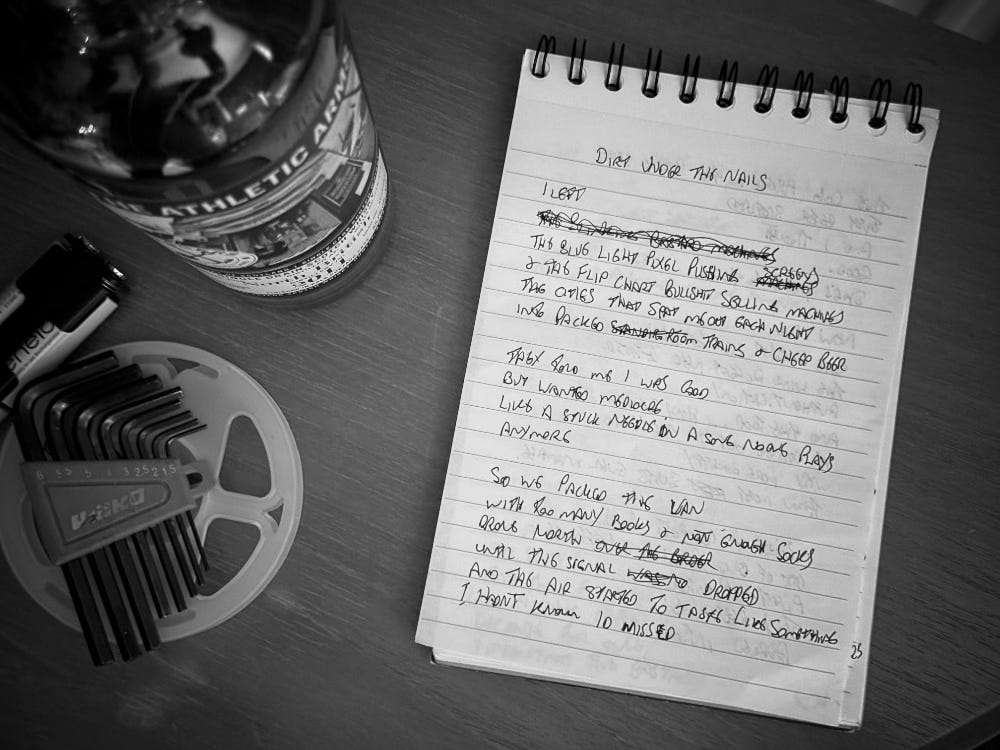 THE ATHLETIC ARMS
6 5.5 5 4 3 2.5 2 1.5
DIRT UNDER THE NAILS
I LEFT
BASTARD MACHINES
THE BLUE LIGHT PIXEL PUSHING SCREENS
& THE FLIP CHART BULLSHIT SELLING MACHINES
THE CITIES THAT SPAT ME OUT EACH NIGHT
INTO PACKED STANDING ROOM TRAINS & CHEEP BEER
THEY TOLD ME I WAS GOOD
BUT WANTED MEDIOCRE
LIKE A STUCK NEEDLE IN A SONG NOONE PLAYS
ANYMORE
SO WE PACKED THE VAN
WITH TOO MANY BOOKS & NOT ENOUGH SOCKS
DROVE NORTH OVER THE BORDER
UNTIL THE SIGNAL WAS DROPPED
AND THE AIR STARTED TO TASTE LIKE SOMETHING
I HADNT KNOWN ID MISSED
25